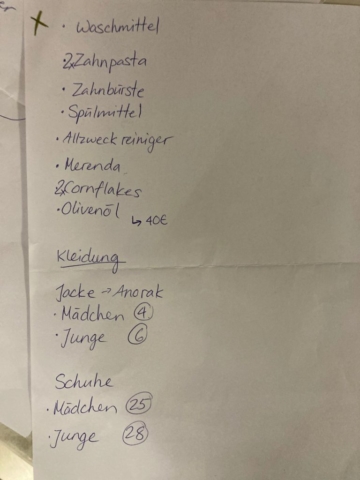 · Waschmittel
2xZahnpasta
· Zahnbürste
· Spülmittel
· Allzweckreiniger
· Merenda
2xCornflakes
· Olivenöl
↳ 40€
Kleidung
Jacke → Anorak
· Mädchen 4
· Junge 6
Schuhe
· Mädchen 25
· Junge 28